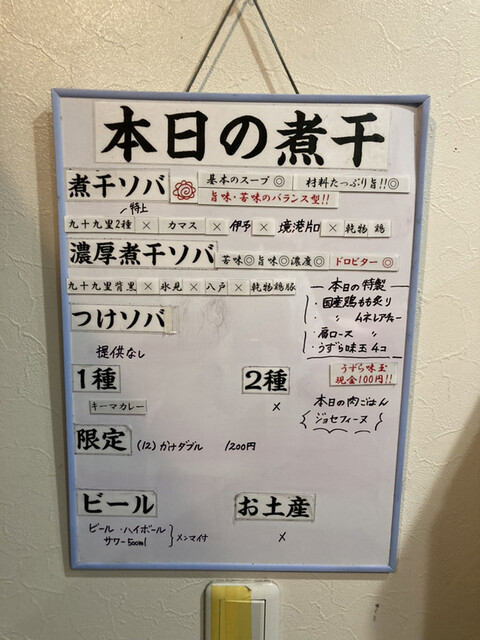 本日の煮干
煮干ソバ 基本のスープ◎ 材料たっぷり旨!!◎
旨味・苦味のバランス型!!
特上
九十九里2種 × カマス × 伊予 × 境港片口 × 乾物 鶏
濃厚煮干ソバ 苦味◎旨味◎濃度◎ ドロビター◎
九十九里背黒 × 氷見 × 八戸 × 乾物鶏豚
本日の特製
・国産鶏もも炙り
・ 〃 ムネレアチャー
・肩ロース 〃
・うずら味玉4コ
つけソバ
提供なし
うずら味玉
現金100円!!
1種 2種
キーマカレー ×
本日の肉ごはん
ジョセフィーヌ
限定 (12) かけダブル 1200円
ビール お土産
ビール・ハイボール
サワー500ml メンマ付 ×